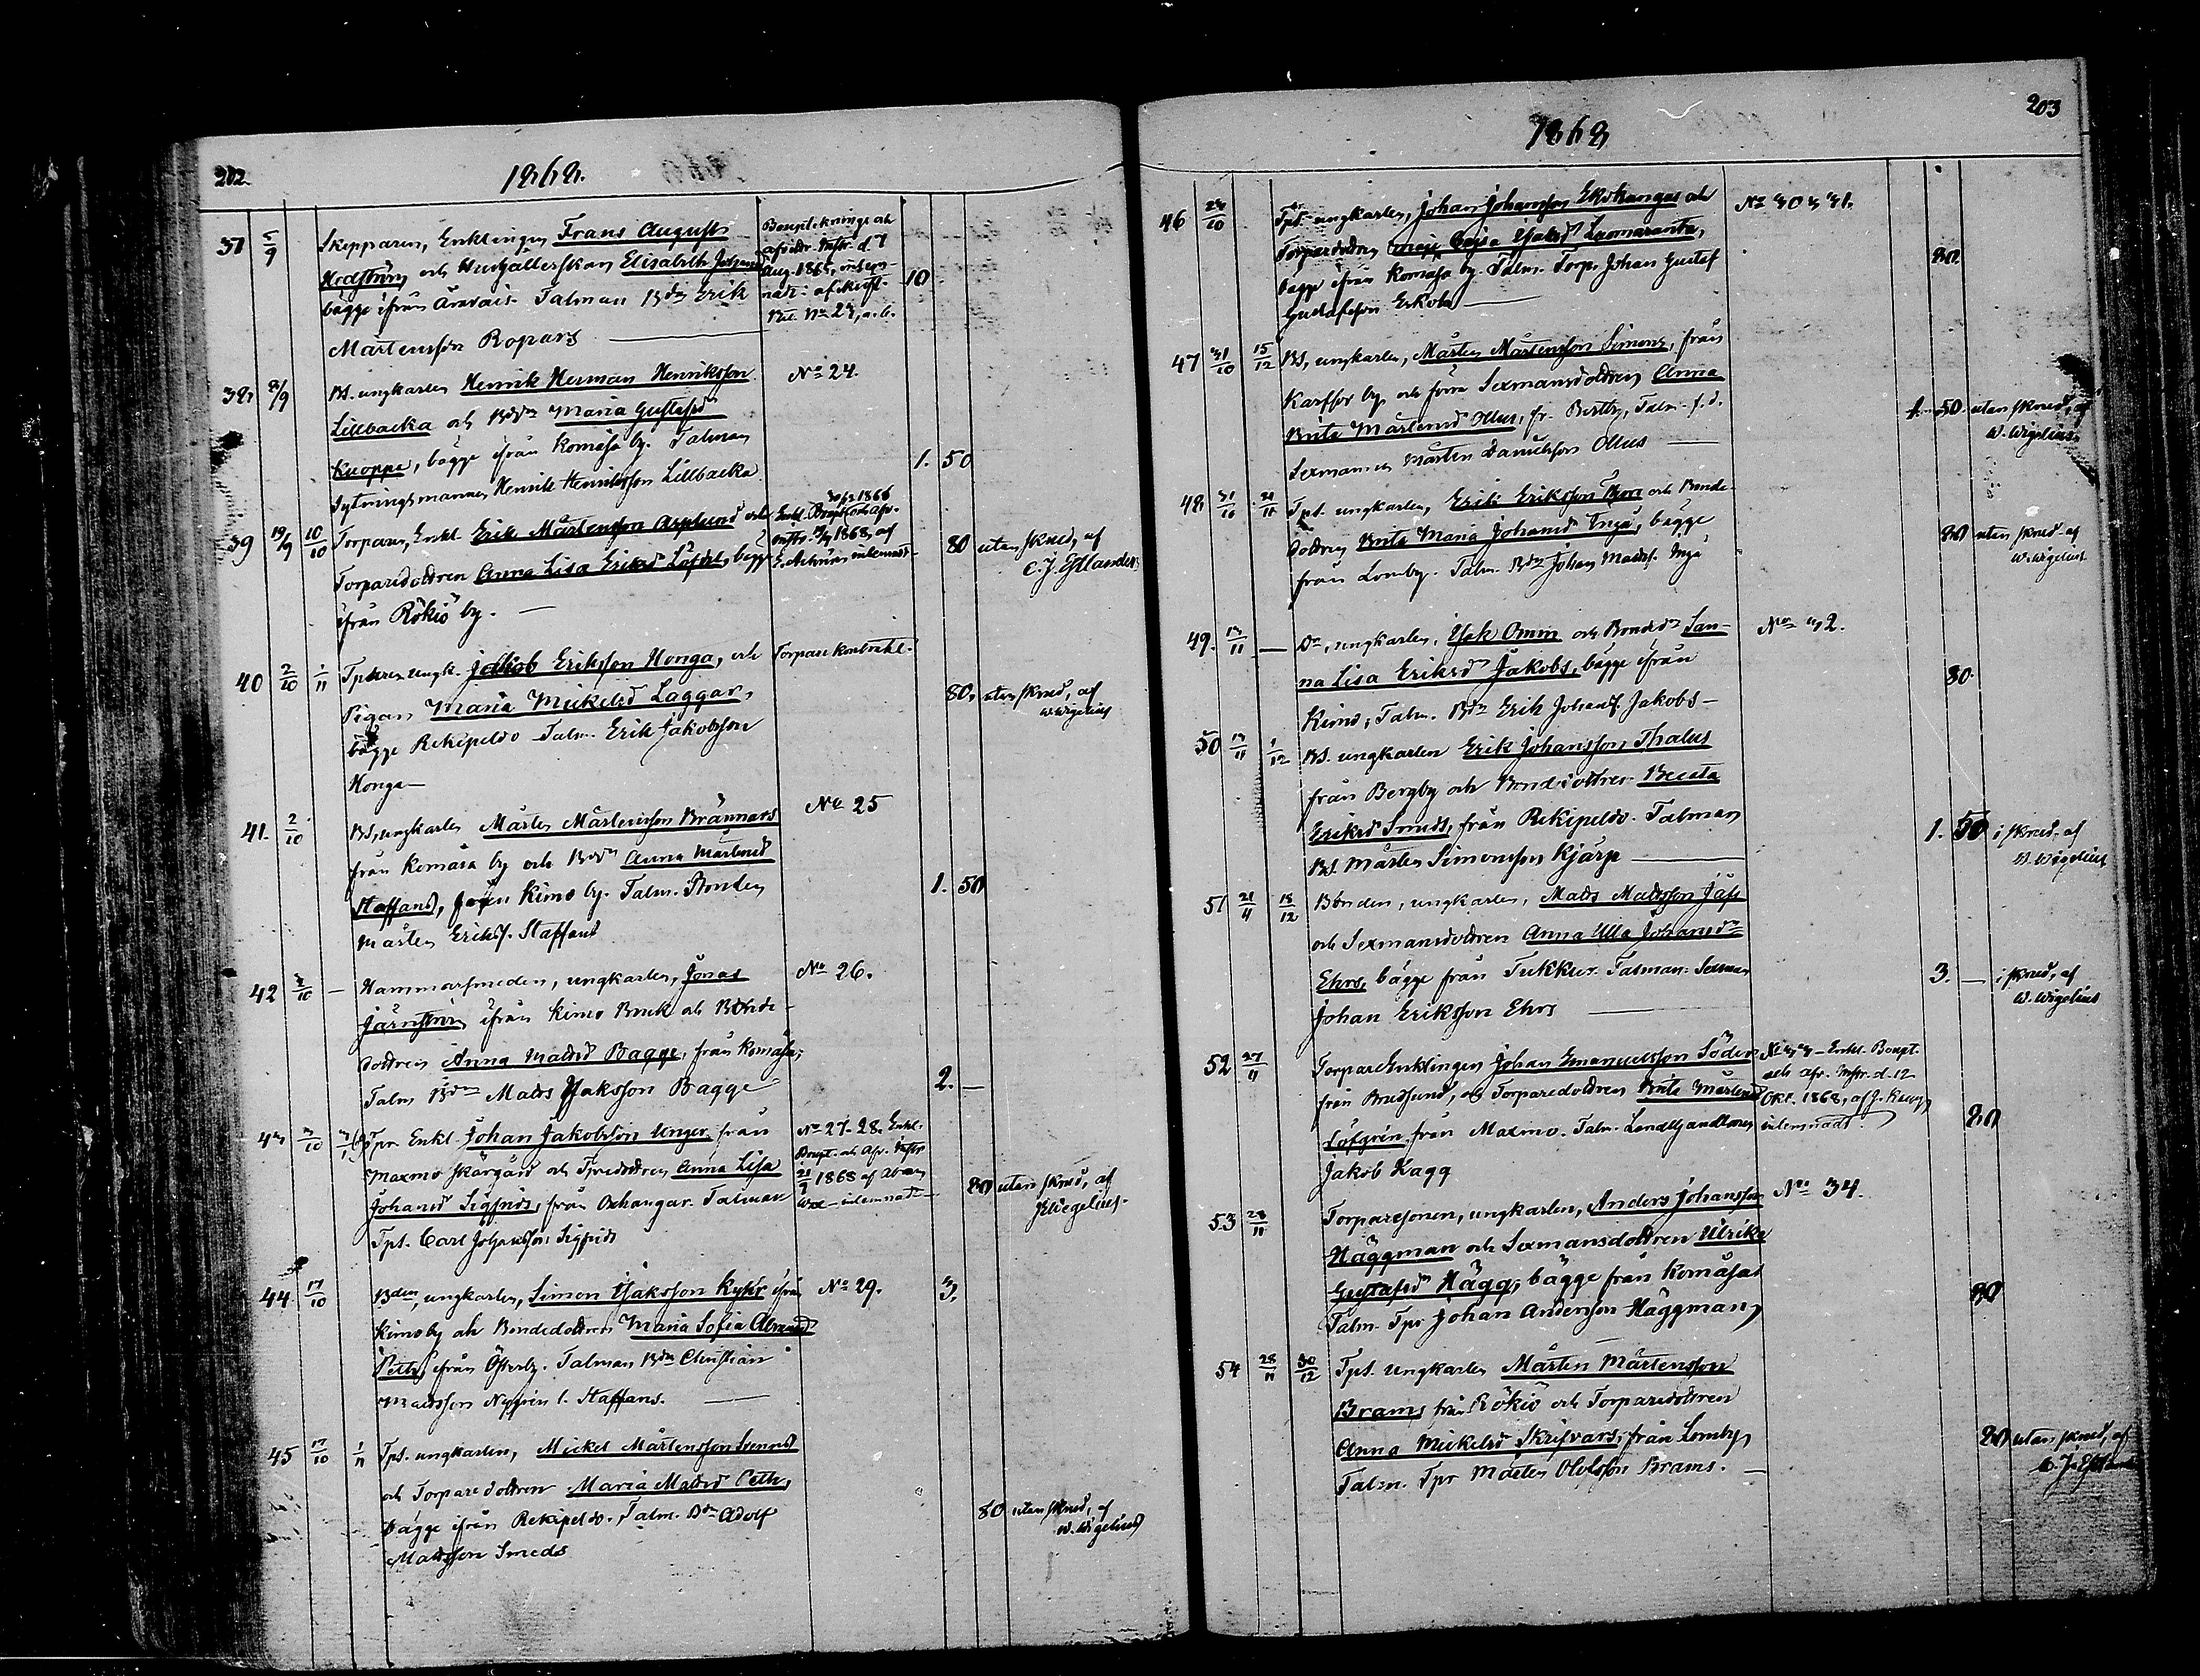 202.
1868.
37 5/9 Skepparen, Enklingen Frans August
och Hushållerskan Elisabeth
bägge ifrån Oravais. Talman Bdn Erik 10
Mårtensson Ropars
Bil. No 23, a. b.
38 9/9 Bs. ungkarlen Henrik Herman Henriksson No 24.
Lillbacka och Bdr Maria Gustafsd
Knoppe, bägge ifrån Komåsa by. Talman
Sytningsmannen Henrik Henriksson Lillbacka 1. 50
39 19/9 10/10 Torparen, Enkl. Erik Mårtensson Asplund och
Torparedottren Anna Lisa Eriksd bägge
ifrån Rökiö by. —
80 utan skrud, af
C. J. Estlander
40 2/10 1/11 ungk. Jakob Eriksson Honga, och Torpare kontrakt.
Pigan Maria Mickelsd Laggar,
bägge Rekipeldo Talm. Erik Jakobsson
Honga —
80, utan skrud, af
W. Wigelius
41. 2/10 Bs, ungkarlen Mårten Mårtensson Brännars No 25
från Komåsa by och Bdr Anna Mårtensd
Staffans, från Kimo by. Talm. Bonden 1. 50
Mårten Eriks. Staffans
42 3/10 — Hammarsmeden, ungkarlen, Jonas No 26.
Järnström ifrån Kimo Bruk och Bonde-
dottren Anna Matsd Bagge, från Komåsa,
Talm Bdn Mats Isaksson Bagge 2. —
43 3/10 Tpr Enkl. Johan Jakobsson Unger, från
Maxmo skärgård och Tpredottren Anna Lisa
Johansd Sigfrids, från Oxkangar. Talman
Tps. Carl Johansson Sigfrids
No 27-28. Enkl.
Boupt. och Afv. Inför
21/9 1868 af
inlemnadt —
80 utan skrud, af
Wegelius.
44 17/10 Bden, ungkarlen, Simon Isaksson Kyhr ifrån No 29. 3.
Kimo by och Bondedottren Maria Sofia
Peth, ifrån Österby. Talman Bdn Christian
Matsson l. Staffans.
45 17/10 1/11 Tps. ungkarlen, Mickel Mårtensson
och Torparedottren Maria Matsd Peth,
bägge ifrån Rekipeldo. Talm. Bdn Adolf
Matsson Smeds
80 utan skrud, af
W. Wigelius
203
1868
46 23/10 Tps. ungkarlen, Johan Johansson och No 30, 31.
Torparedottren Maja Cajsa Isaksd Luomaranta,
bägge ifrån Komåsa by. Talm. Torp. Johan Gustaf 80.
Gustafsson Erkola
47 31/10 15/12 Bs, ungkarlen, Mårten Mårtensson Simons, från
Karfsor by och förra Sexmansdottren Anna
Brita Mårtensd Ollus, fr. Bertby, Talm. f. d.
Sexmannen Mårten Danielsson Ollus
50 utan skrud, af
W. Wigelius.
48 Tps. ungkarlen, Erik Eriksson och Bonde-
dottren Brita Maria Johansd Ingå, bägge
från Lomby. Talm. Bdn Johan Mats. Ingå
80 utan skrud af
W. Wigelius
49. 13/11 — Dr, ungkarlen, Isak Omm och Bondedr San- No 32.
na Lisa Eriksd Jakobs, bägge ifrån
Kimo, Talm. Bdn Erik Johans. Jakobs — 80.
50 13/11 1/12 Bs. ungkarlen Erik Johansson Thalus
från Bergby och Bondedottren Beata
Eriksd Smeds, från Rekipeldo. Talman
Bs. Mårten Simonsson Kjärp
1. 50 i skrud af
W. Wigelius
51 21/11 15/12 Bonden, ungkarlen, Mats Matsson
och Sexmansdottren Anna Ulla Johansdr
Ehrs, bägge från Tukkur. Talman: Sexman
Johan Eriksson Ehrs
3. — i skrud, af
W. Wigelius
52 27/11 Torpare Enklingen Johan Emanuelsson Söder
från Brudsund, och Torparedottren Brita Mårtensd
Löfgrén från Maxmo. Talm. Landthandlaren
Jakob Kagg
No 33 — Enkl. Boupt.
och Afv. Inför. d. 12
Okt. 1868, af J. Kagg
inlemnadt.
80
53 28/11 Torparesonen, ungkarlen, Anders Johansson No 34.
Häggman och Sexmansdottren Ulrika
Gustafsd Hägg, bägge från Komåsa
Talm. Tpr Johan Andersson Häggman, 80
54 28/11 30/12 Tps. ungkarlen Mårten Mårtensson
Brams från Rökiö och Torparedottren
Anna Mickelsd Skrifvars, från Lomby,
Talm. Tpr Mårten Olofsson Brams. —
80 utan skrud, af
C. J. Estlander